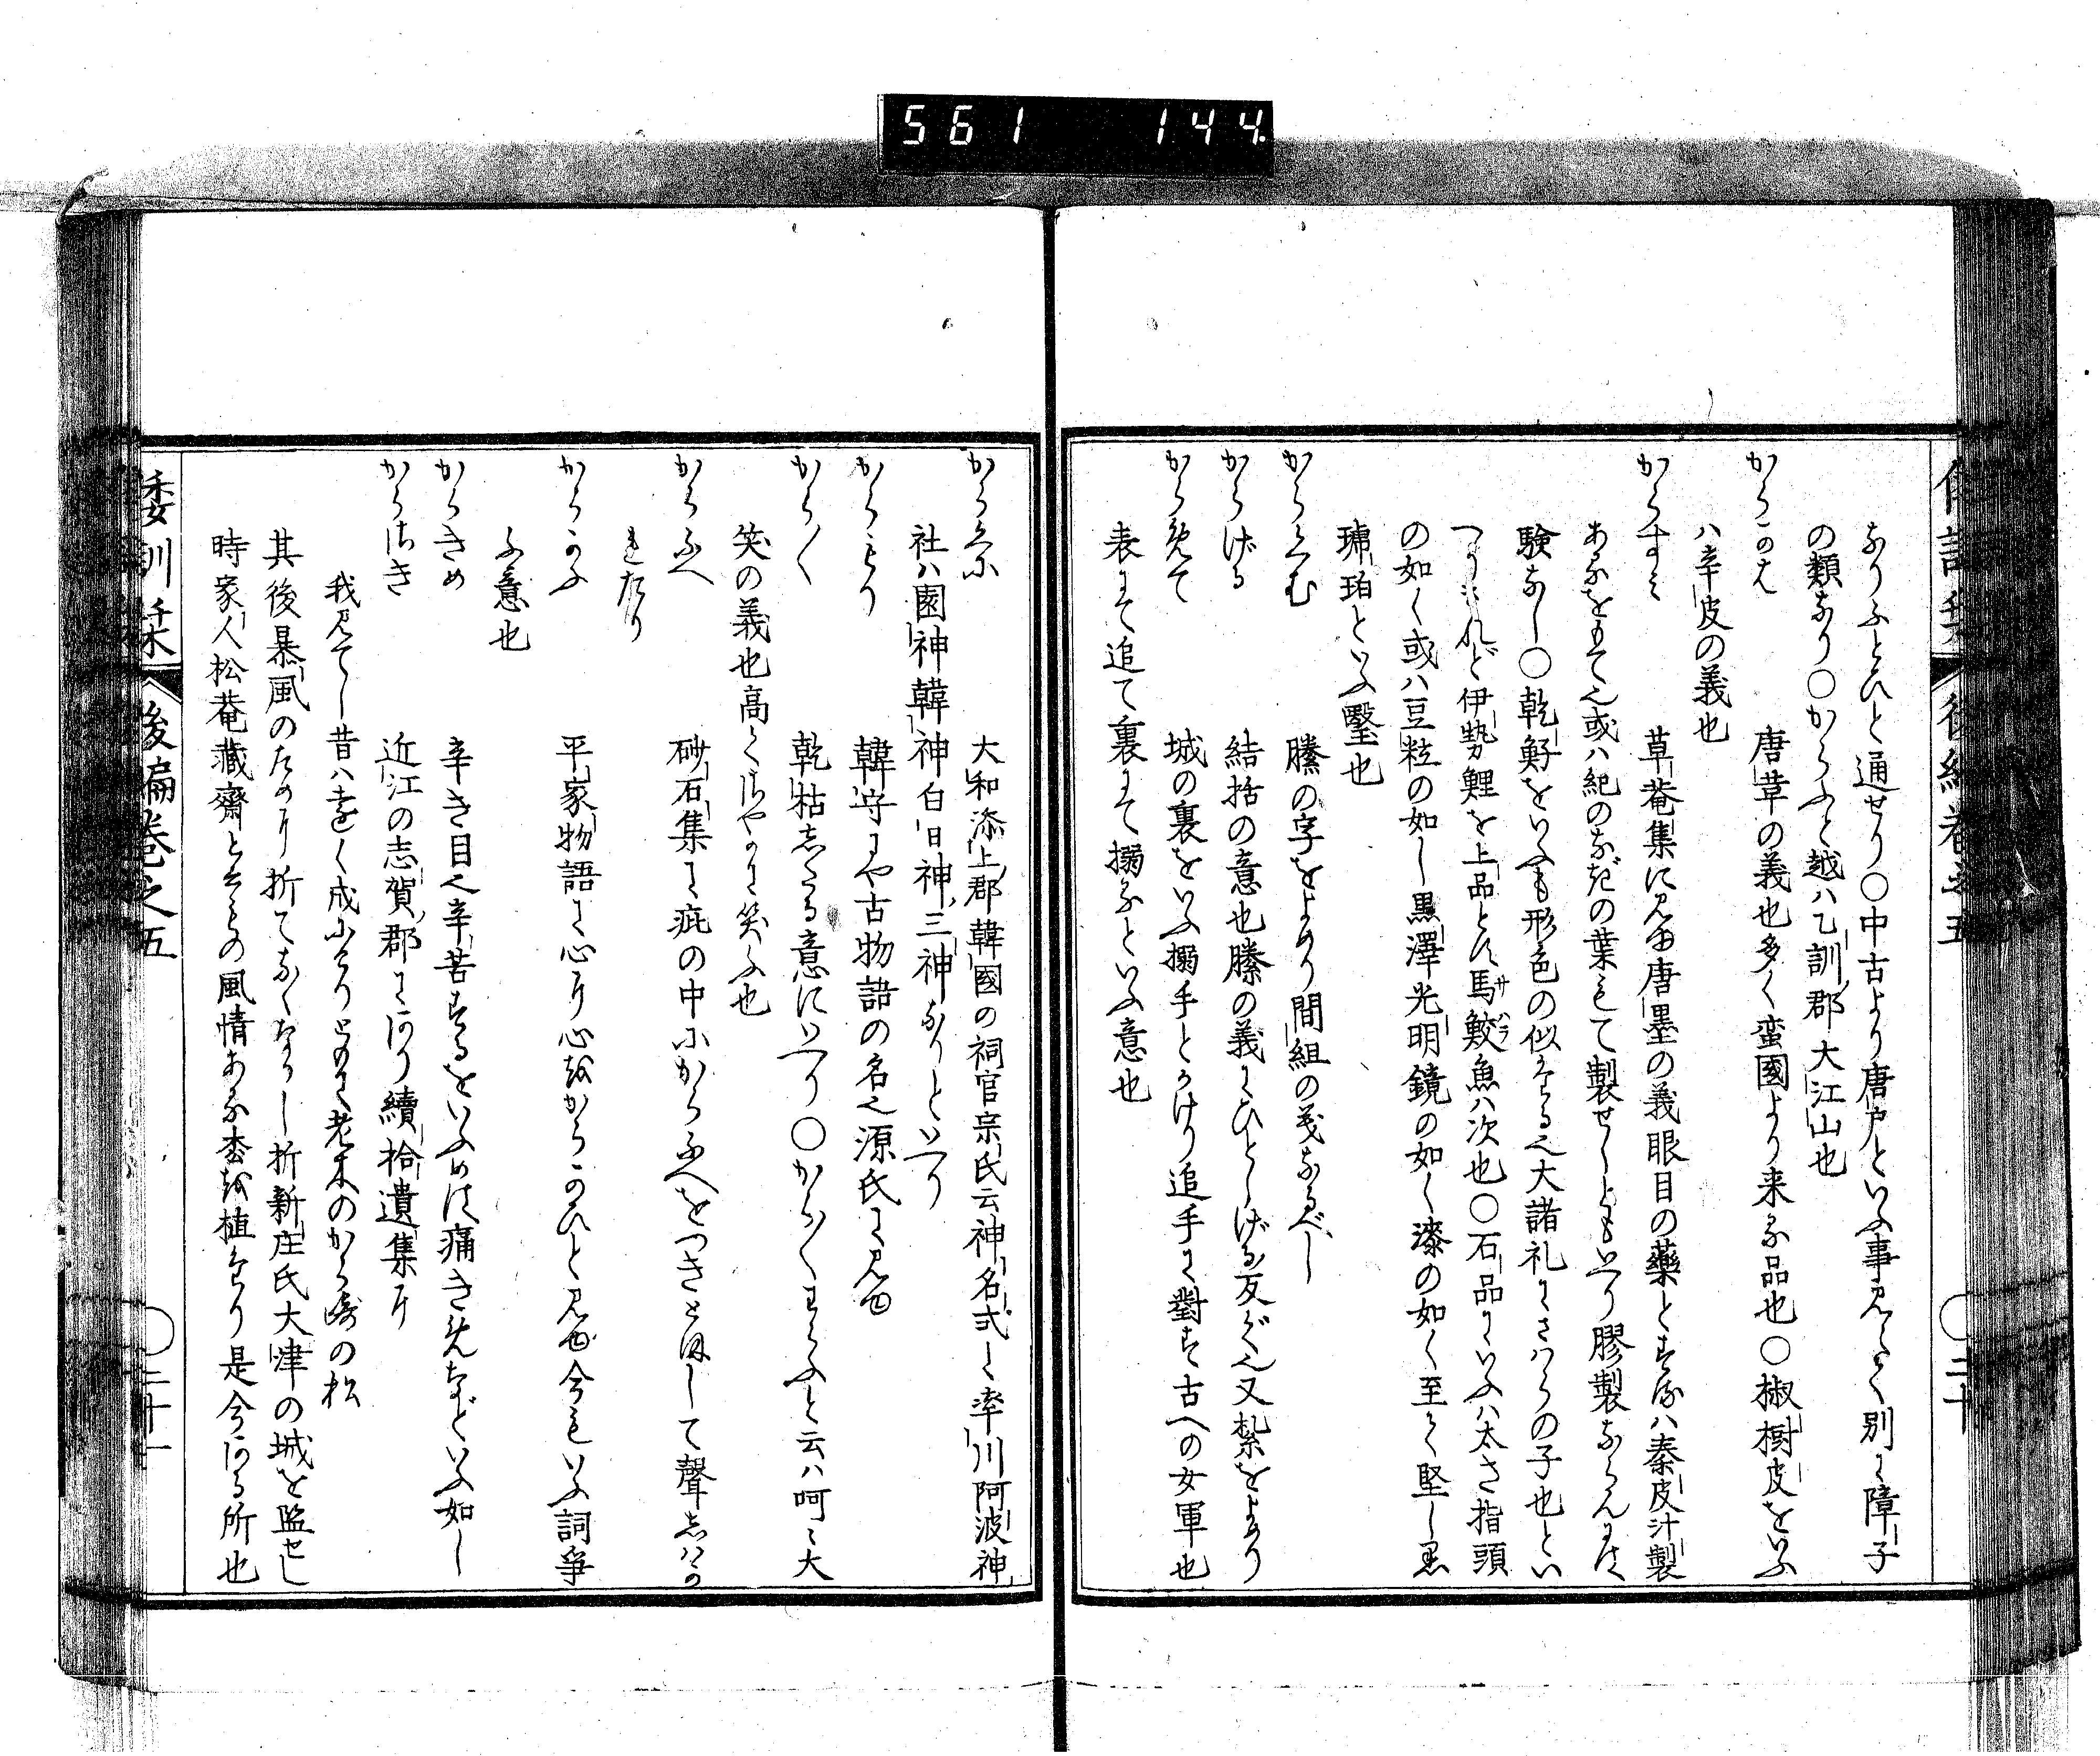 561 144
なりふとひと通せり〇中古より唐戸といふ事見えて別に障子
の類なり〇からふと越ハ乙訓郡大江山也
からかは 唐革の義也多く蛮國より来る品也〇椒樹皮をいふ
ハ辛皮の義也
からすミ 草菴集に見ゆ唐墨の義眼目の藥とするハ秦皮汁製
あるをもて也或ハ紀のなだの葉もて製せしともいへり膠製ならんにハ
験なし〇乾鮞をいふも形色の似たる也大諸礼にさハらの子也とい
つりされど伊勢鯉を上品とす馬鮫魚ハ次也〇石品にいふハ太さ指頭
の如く或ハ豆粒の如し黒澤光明鏡の如く漆の如く至て堅し黒
琥珀といふ瑿也
からくむ 縢の字をよめり間組の義なるべし
からげる 結括の意也縢の義にひとしげる反ぐ也又紮をよめり
からめて 城の裏をいふ搦手とかけり追手に對す古への女軍也
表にて追て裏にて搦るといふ意也
倭訓栞 後編巻之五 二十
からくに 大和添上郡韓國の祠官宗氏云神名式に率川阿波神
社ハ園神韓神白日神三神なりといへり
からもり 韓守にや古物語の名也源氏に見ゆ
から〱 乾枯したる意にいへり〇から〱わらふと云ハ呵〻大
笑の義也高くはやかに笑ふ也
からふへ 砂石集に疵の中にからふへをつきとほして聲しハか
れたり
からかふ 平家物語に心に心をからかひと見ゆ今もいふ詞爭
ふ意也
からきめ 辛き目也辛苦するをいふめは痛きめなどいふ如し
からさき 近江の志賀郡にあり續拾遺集に
我見てし昔ハ遠く成にけりともに老木のから崎の松
其後暴風のために折てなくなりし折新庄氏大津の城を監せし
時家人松菴藏齋といふもの風情ある松を植たり是今ある所也
倭訓栞 後編巻之五 二十一